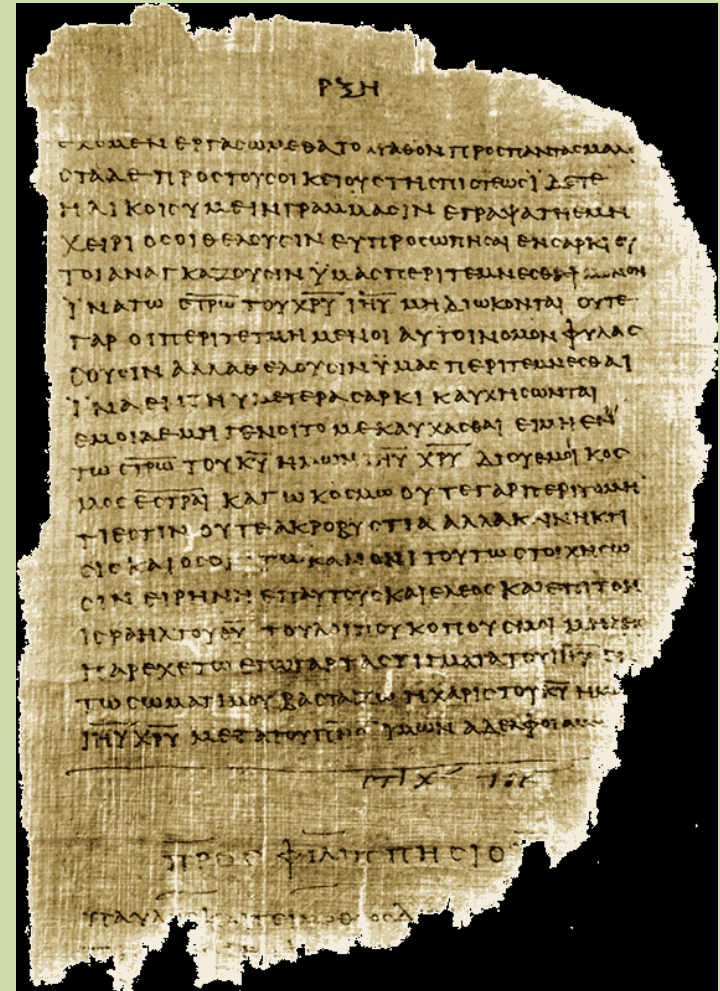 ΡΞΗ
ΕΧΟΜΕΝ ΕΡΓΑСΩΜΕΘΑ ΤΟ ΑΓΑΘΟΝ ΠΡΟС ΠΑΝΤΑС ΜΑΛΙ
СΤΑ ΔΕ ΠΡΟС ΤΟΥС ΟΙΚΕΙΟΥС ΤΗС ΠΙСΤΕΩС ΪΔΕΤΕ
ΗΛΙΚΟΙС ΥΜΕΙΝ ΓΡΑΜΜΑСΙΝ ΕΓΡΑΨΑ ΤΗ ΕΜΗ
ΧΕΙΡΙ ΟСΟΙ ΘΕΛΟΥСΙΝ ΕΥΠΡΟСΩΠΗСΑΙ ΕΝ СΑΡΚΙ ΟΥ
ΤΟΙ ΑΝΑΓΚΑΖΟΥСΙΝ ΫΜΑС ΠΕΡΙΤΕΜΝΕСΘΑΙ ΜΟΝΟΝ
ΪΝΑ ΤΩ С̅Τ̅Ρ̅Ω̅ ΤΟΥ Χ̅Ρ̅Υ̅ Ι̅Η̅Υ̅ ΜΗ ΔΙΩΚΟΝΤΑΙ ΟΥΤΕ
ΓΑΡ ΟΙ ΠΕΡΙΤΕΤΜΗΜΕΝΟΙ ΑΥΤΟΙ ΝΟΜΟΝ ΦΥΛΑС
СΟΥСΙΝ ΑΛΛΑ ΘΕΛΟΥСΙΝ ΫΜΑС ΠΕΡΙΤΕΜΝΕСΘΑΙ
ΪΝΑ ΕΝ ΤΗ ΥΜΕΤΕΡΑ СΑΡΚΙ ΚΑΥΧΗСΩΝΤΑΙ
ΕΜΟΙ ΔΕ ΜΗ ΓΕΝΟΙΤΟ ΜΕ ΚΑΥΧΑСΘΑΙ ΕΙ ΜΗ ΕΝ
ΤΩ С̅Τ̅Ρ̅Ω̅ ΤΟΥ Κ̅Υ̅ ΗΜΩΝ Ι̅Η̅Υ̅ Χ̅Ρ̅Υ̅ ΔΙ ΟΥ ΕΜΟΙ ΚΟС
ΜΟС Ε̅С̅Τ̅Ρ̅Α̅Ι̅ ΚΑΓΩ ΚΟСΜΩ ΟΥΤΕ ΓΑΡ ΠΕΡΙΤΟΜΗ
ΤΙ ΕСΤΙΝ ΟΥΤΕ ΑΚΡΟΒΥСΤΙΑ ΑΛΛΑ ΚΑΙΝΗ ΚΤΙ
СΙС ΚΑΙ ΟСΟΙ ΤΩ ΚΑΝΟΝΙ ΤΟΥΤΩ СΤΟΙΧΗСΩ
СΙΝ ΕΙΡΗΝΗ ΕΠ ΑΥΤΟΥС ΚΑΙ ΕΛΕΟС ΚΑΙ ΕΠΙ ΤΟΝ
ΙСΡΑΗΛ ΤΟΥ Θ̅Υ̅ ΤΟΥ ΛΟΙΠΟΥ ΚΟΠΟΥС ΜΟΙ ΜΗΔΕΙС
ΠΑΡΕΧΕΤΩ ΕΓΩ ΓΑΡ ΤΑ СΤΙΓΜΑΤΑ ΤΟΥ Ι̅Η̅Υ̅ ΕΝ
ΤΩ СΩΜΑΤΙ ΜΟΥ ΒΑСΤΑΖΩ Η ΧΑΡΙС ΤΟΥ Κ̅Υ̅ ΗΜΩ
Ι̅Η̅Υ̅ Χ̅Ρ̅Υ̅ ΜΕΤΑ ΤΟΥ Π̅Ν̅Σ̅ ΥΜΩΝ ΑΔΕΛΦΟΙ ΑΜΗΝ
СΤΙΧ ΤΟΕ
ΠΡΟС ΦΙΛΙΠΠΗСΙΟΥ
ΠΑΥΛΟС ΚΑΙ ΤΕΙΜΟΘΕΟС